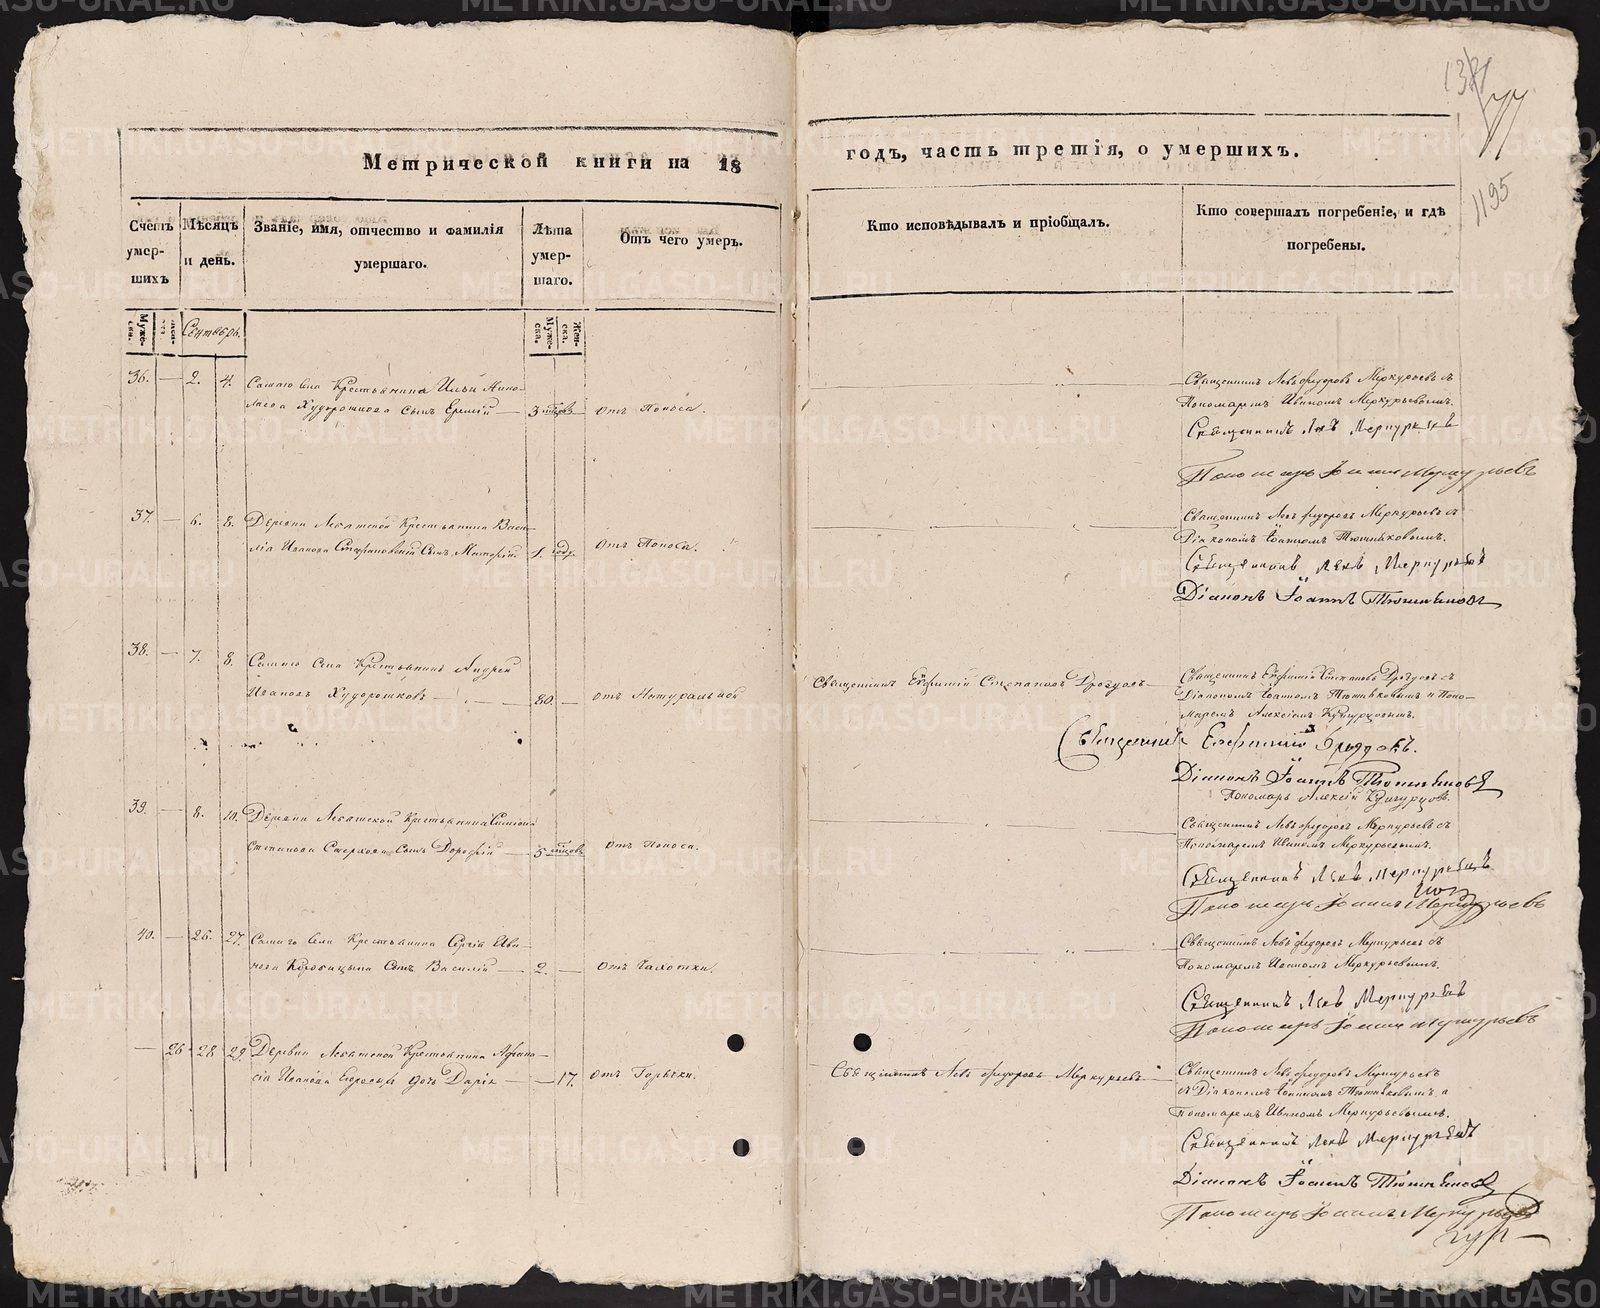 Метрической книги на 18 годъ, часть третія, о умершихъ.
1195
Счетъ умер-шихъ
Мѣсяцъ и день.
Званіе, имя, отчество и фамилія умершаго.
Лѣта умер-шаго.
Отъ чего умеръ.
Кто исповѣдывалъ и пріобщалъ.
Кто совершалъ погребеніе, и гдѣ погребены.
Муже-ска.
Сентябрь.
Муже-ска.
Жен-ска.
36. — 2. 4. Сего села Крестьянина Ильи
Худорошкова сынъ — 3 отъ Поноса.
Священникъ Левъ Федоровъ Меркурьевъ съ
Пономаремъ Иваномъ Меркурьевымъ.
Священникъ Левъ Меркурьевъ
Пономарь Іоаннъ Меркурьевъ
37. — 6. 8. Деревни Крестьянина Васи-
лія Иванова сынъ — 1. годъ отъ Поноса.
Священникъ Левъ Федоровъ Меркурьевъ съ
Діакономъ Іоанномъ
Священникъ Левъ Меркурьевъ
Діаконъ Іоаннъ
38. — 7. 8. села Крестьянинъ Андрей
Ивановъ Худорошковъ — 80. — отъ Натуральной
Священникъ Евфимій Степановъ Дроздовъ
Священникъ Евфимій Степановъ Дроздовъ съ
Діакономъ Іоанномъ и Поно-
маремъ Алексіемъ
Священникъ Евфимій Дроздовъ.
Діаконъ Іоаннъ
Пономарь Алексій
39. — 8. 10. Деревни Крестьянина Симеона
Степанова сынъ Дорофій — 5 отъ Поноса.
Священникъ Левъ Федоровъ Меркурьевъ съ
Пономаремъ Иваномъ Меркурьевымъ.
Священникъ Левъ Меркурьевъ
Пономарь Іоаннъ Меркурьевъ
40. — 26. 27. села Крестьянина Сергія Ива-
нова Коровицына сынъ Василій — 2. — отъ Чахотки.
Священникъ Левъ Федоровъ Меркурьевъ съ
Пономаремъ Иваномъ Меркурьевымъ.
Священникъ Левъ Меркурьевъ
Пономарь Іоаннъ Меркурьевъ
— 26 28 29. Деревни Крестьянина Афана-
сія Иванова дочь Дарія — 17. отъ Горячки.
Священникъ Левъ Федоровъ Меркурьевъ
Священникъ Левъ Федоровъ Меркурьевъ
съ Діакономъ Іоанномъ и
пономаремъ Иваномъ Меркурьевымъ.
Священникъ Левъ Меркурьевъ
Діаконъ Іоаннъ
Пономарь Іоаннъ Меркурьевъ
METRIKI.GASO-URAL.RU